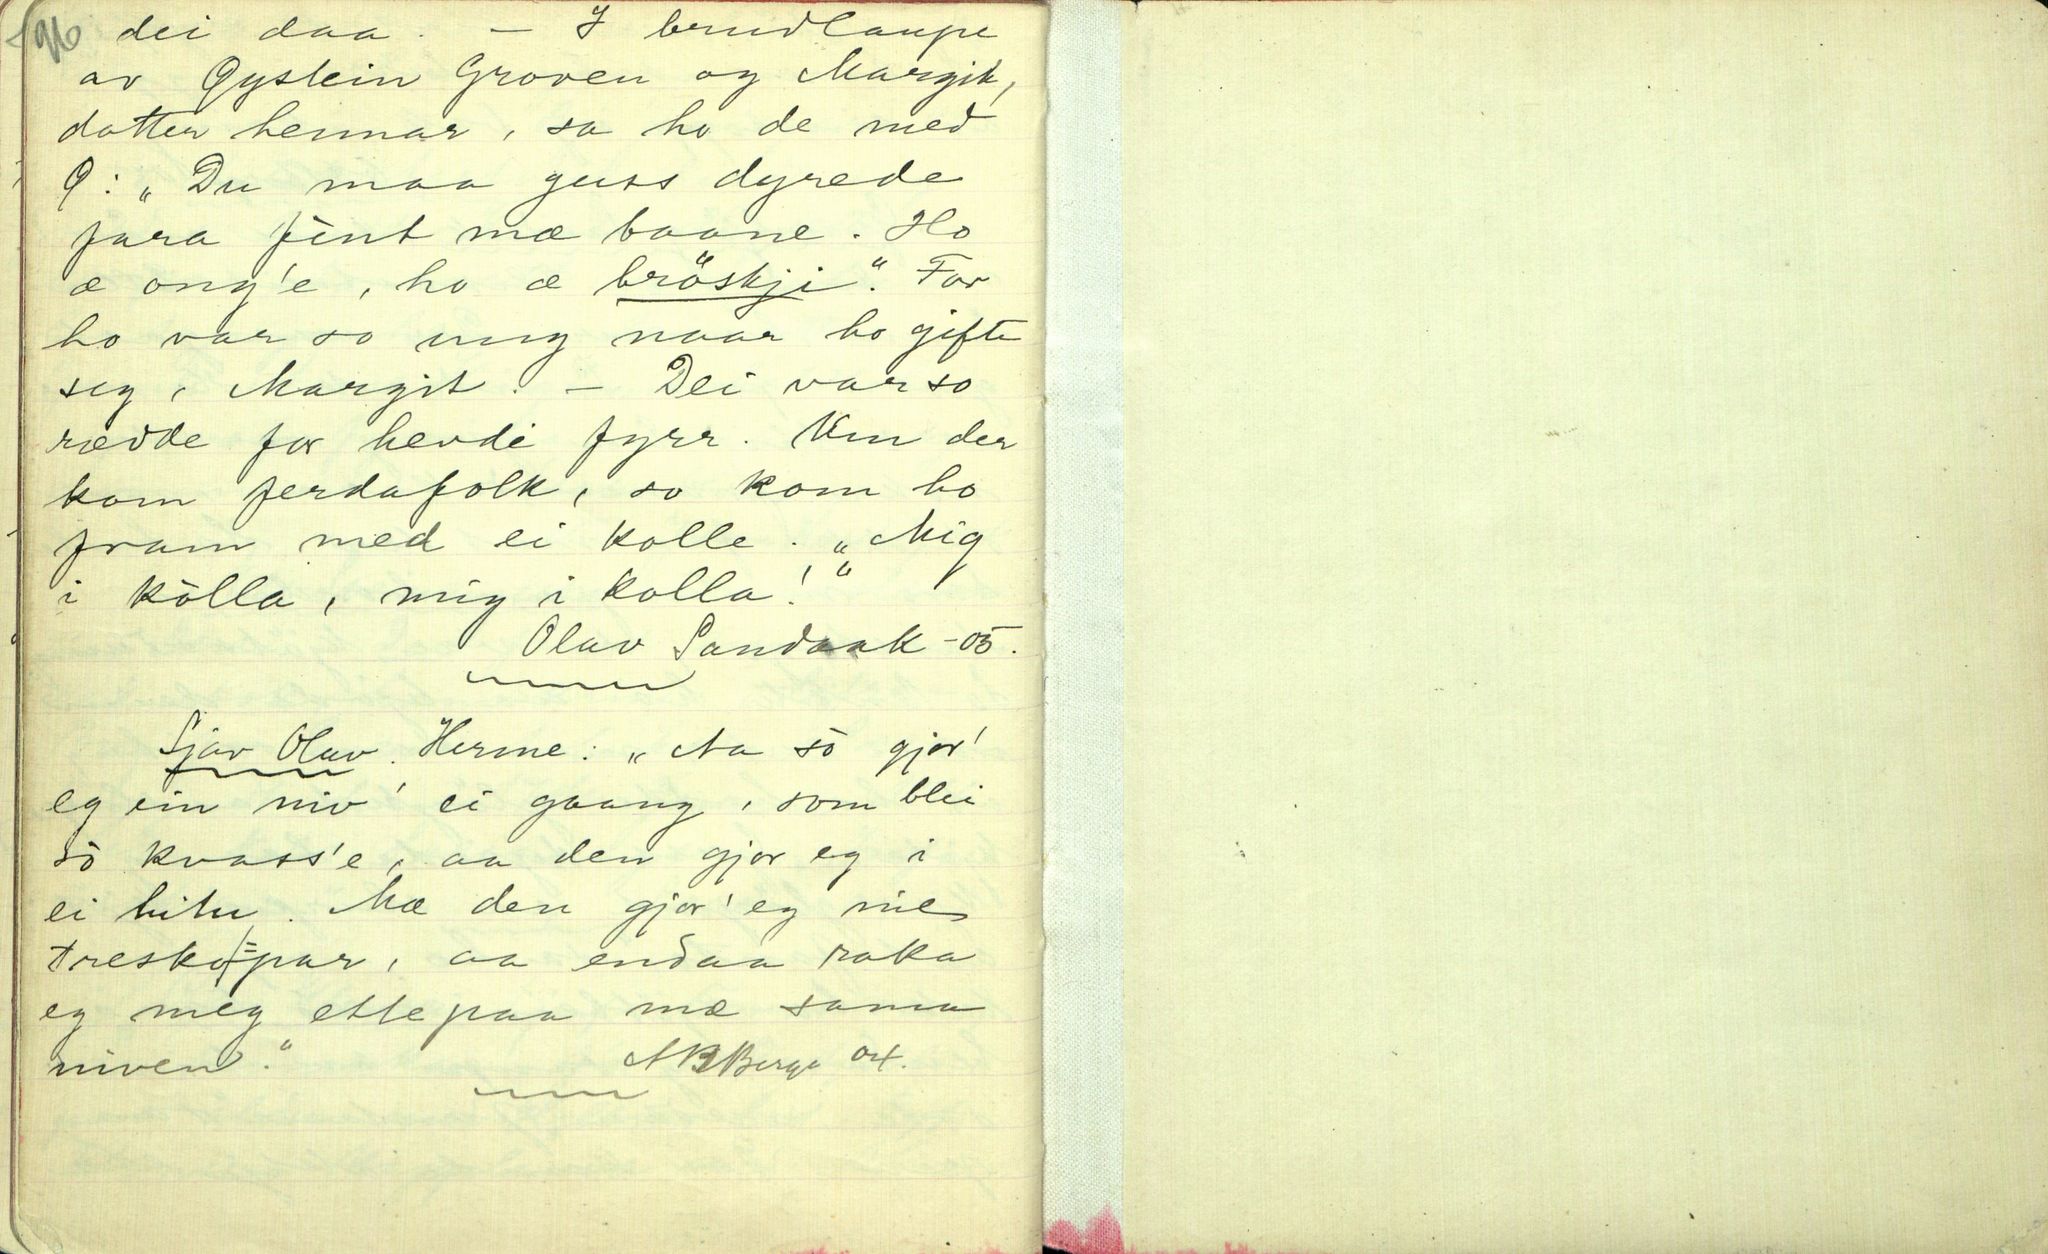 96 dei daa. – I brudlaupe
av Øystein Groven og Margit,
dotter hennar, sa ho de med
Ø: „Du maa guss dyrede
fara fint mæ baane. Ho
æ ong'e, ho æ bröskji“. For
ho var so ung naar ho gifte
seg, Margit. – Dei var so
rædde for hendi fyrr. Um der
kom ferdafolk, so kom ho
fram med ei kolle. „Mig
i kòlla, mig i kolla!“
Olav Sandaak -05.
Sjav Olav. Herme: „Aa sò gjor'
eg ein niv' ei gaang, som blei
sò kvass'e, aa den gjor eg i
ei hitu. Mæ den gjor' eg nie
tresko=par, aa endaa raka
eg meg ette paa mæ sama
niven.“ A B Berge 04.